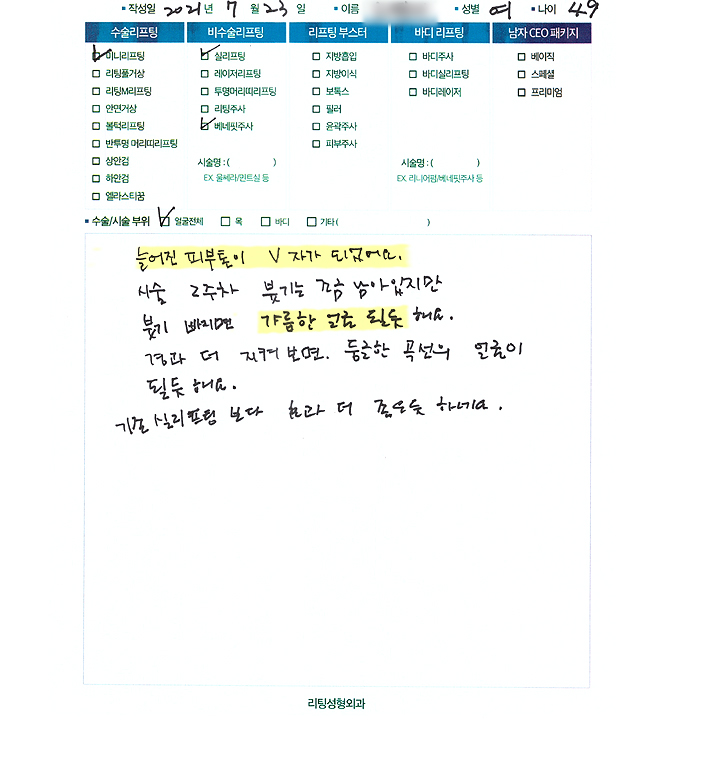 ▪ 작성일 2021년 7월 23일 ▪ 이름 ▪ 성별 여 ▪ 나이 49
수술리프팅 비수술리프팅 리프팅 부스터 바디 리프팅 남자 CEO 패키지
미니리프팅 실리프팅 지방흡입 바디주사 베이직
리팅풀거상 레이저리프팅 지방이식 바디실리프팅 스페셜
리팅M리프팅 투명머리띠리프팅 보톡스 바디레이저 프리미엄
안면거상 리팅주사 필러
볼턱리프팅 베네핏주사 윤곽주사
반투명 머리띠리프팅 피부주사
상안검 시술명 : ( ) 시술명 : ( )
하안검 EX. 울쎄라/민트실 등 EX. 리니어펌/베네핏주사 등
엘라스티꿈
▪ 수술/시술 부위 얼굴전체 목 바디 기타 ( )
늘어진 피부톨이 V 자가 되었어요.
시술 2주차 붓기는 조금 남아있지만
붓기 빠지면 갸름한 얼굴 될듯 해요.
경과 더 지켜보면. 둥글한 곡선의 얼굴이
될듯 해요.
기존 실리프팅 보다 효과 더 좋은듯 하네요.
리팅성형외과